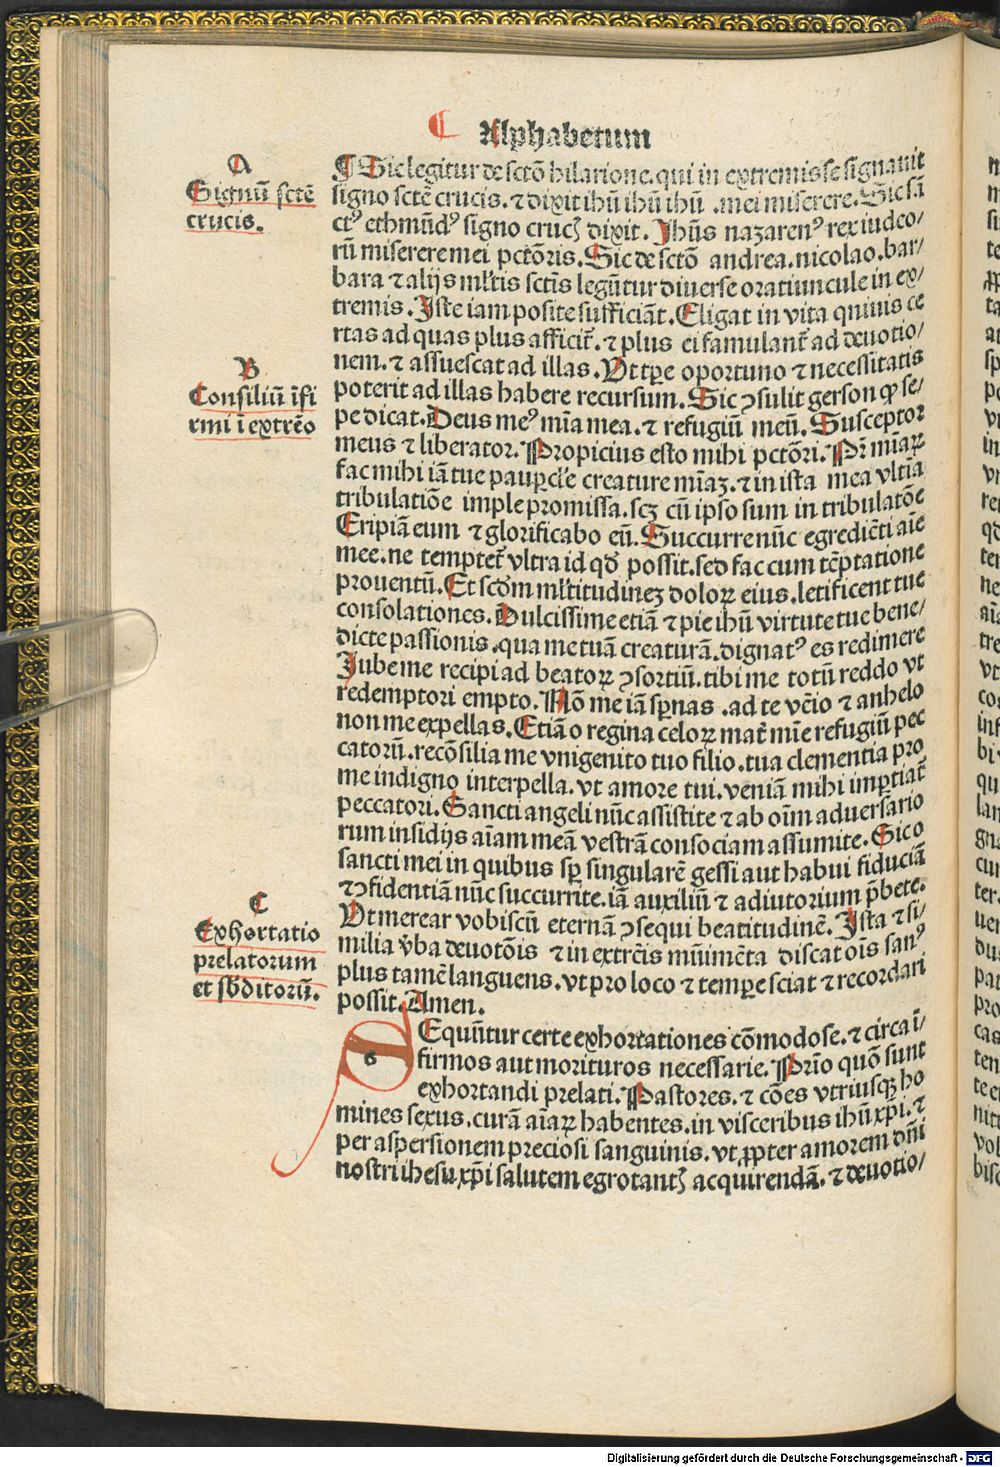 C Alphabetum
A
Signū sctē
crucis.
¶ Sic legitur de sctō hilarione. qui in extremis se signauit
signo sctē crucis. ⁊ dixit ihū ihū ihū .mei miserere. Sic sā
ctꝰ ethmūdꝰ signo crucꝭ dixit. Jhūs nazarenꝰ rex iudeo/
rū miserere mei pctōris. Sic de sctō andrea. nicolao. bar/
bara ⁊ alijs ml̄tis sctīs legūtur diuerse oratiuncule in ex/
tremis. Iste iam posite sufficiāt. Eligat in vita quiuis ce
rtas ad quas plus afficit̄. ⁊ plus ei famulant̄ ad deuotio/
nem. ⁊ assuescat ad illas. Vt tꝑe oportuno ⁊ necessitatis
B
Consiliū īfi
rmi ī extrēo
poterit ad illas habere recursum. Sic ↄsulit gerson ꝙ se/
pe dicat. Deus meꝰ mīa mea. ⁊ refugiū meū. Susceptor
meus ⁊ liberator. Propicius esto mihi pctōri. Pr̄ miaꝝ
fac mihi iā tue pauꝑcl̄e creature mīaꝫ. ⁊ in ista mea vltīa
tribulatiōe imple promissa. scꝫ cū ipso sum in tribulatōe
Eripiā eum ⁊ glorificabo eū. Succurre nūc egrediēti aīe
mee. ne temptet̄ vltra id qd̄ possit. sed fac cum tēptatione
prouentū. Et scd̄m ml̄titudineꝫ doloꝝ eius. letificent tue
consolationes. Dulcissime etiā ⁊ pie ihū virtute tue bene/
dicte passionis. qua me tuā creaturā. dignatꝰ es redimere
Jube me recipi ad beatoꝝ ↄsortiū. tibi me totū reddo vt
redemptori empto. Nō me iā sꝑnas .ad te vēio ⁊ anhelo
non me expellas. Etiā o regina celoꝝ mat̄ mīe refugiū pec
catorū. recōsilia me vnigenito tuo filio. tua clementia pro
me indigno interpella. vt amore tui. veniā mihi imꝑtiat̄
peccatori. Sancti angeli nūc assistite ⁊ ab oīm aduersario
rum insidijs aīam meā vestrā consociam assumite. Sic o
sancti mei in quibus sꝑ singularē gessi aut habui fiduciā
⁊ ↄfidentiā nūc succurrite. iā auxiliū ⁊ adiutorium p̄bete.
Vt merear vobiscū eternā ↄsequi beatitudinē. Ista ⁊ si/
milia v̄ba deuotōis ⁊ in extrēis mūimēta discat oīs sanꝰ
plus tamē languens. vt pro loco ⁊ tempe sciat ⁊ recordari
possit. Amen.
C
Exhortatio
prelatorum
et sb̄ditorū.
s Equūtur certe exhortationes cōmodose. ⁊ circa ī/
firmos aut morituros necessarie. Prīo quō sunt
exhortandi prelati. Pastores. ⁊ cōes vtriusqꝫ ho
mines sexus. curā aīaꝝ habentes. in visceribus ihū xp̄i. ⁊
per aspersionem preciosi sanguinis. vt ꝓpter amorem dn̄i
nostri ihesu xp̄i salutem egrotantꝭ acquirendā. ⁊ deuotio/
Digitalisierung gefördert durch die Deutsche Forschungsgemeinschaft - DFG